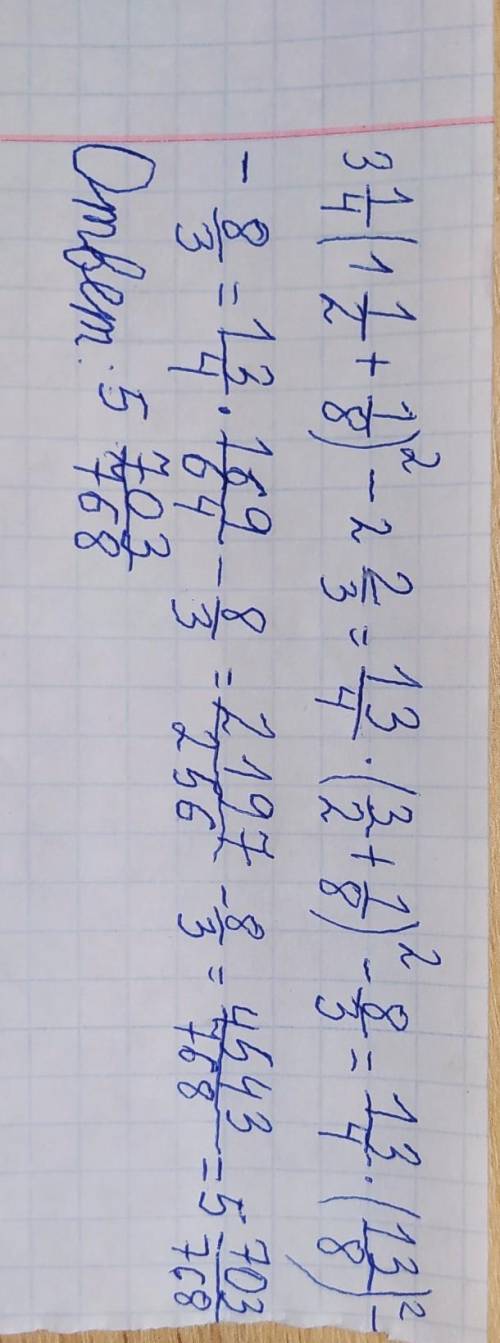 3 1/4 (1 1/2 + 1/8)² - 2 2/3 = 13/4 · (3/2 + 1/8)² - 8/3 = 13/4 · (13/8)² -
- 8/3 = 13/4 · 169/64 - 8/3 = 2197/256 - 8/3 = 4543/768 = 5 703/768
Ответ: 5 703/768